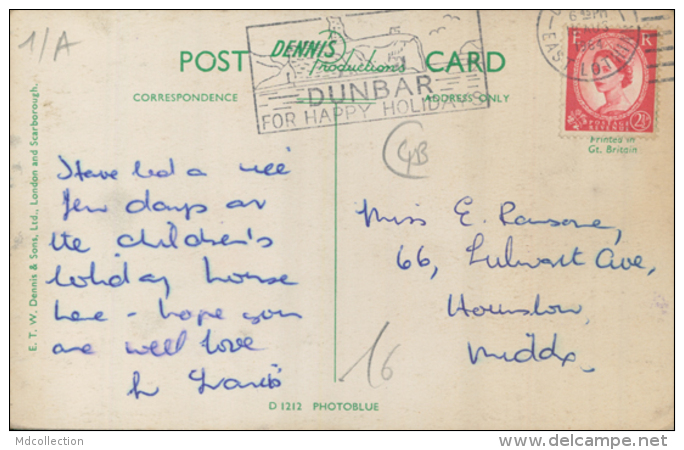 1/A
POST DENNIS Productions CARD
DUNBAR
FOR HAPPY HOLIDAYS
CORRESPONDENCE
ADDRESS ONLY
EAST LOTHIAN
1964
Printed in
Gt. Britain
E. T. W. Dennis & Sons, Ltd., London and Scarborough.
GB
Have had a nice
few days at
the children's
holiday house
here - hope you
are well love
Miss E.
66, Lulworth Ave,
Hounslow,
Middx.
16
D 1212 PHOTOBLUE
Mdcollection
delcampe.net